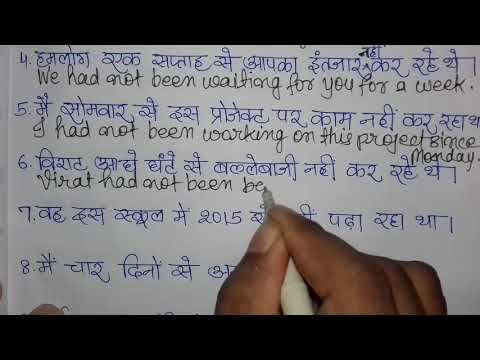 4. हमलोग एक सप्ताह से आपका इंतजार नहीं कर रहे थे।
We had not been waiting for you for a week.
5. मैं सोमवार से इस प्रोजेक्ट पर काम नहीं कर रहा था
I had not been working on this project since
Monday.
6. विराट आधे घंटे से बल्लेबाजी नहीं कर रहे थे।
Virat had not been be
7. वह इस स्कूल में 2015 पढ़ा रहा था।
8. मैं चार दिनों से